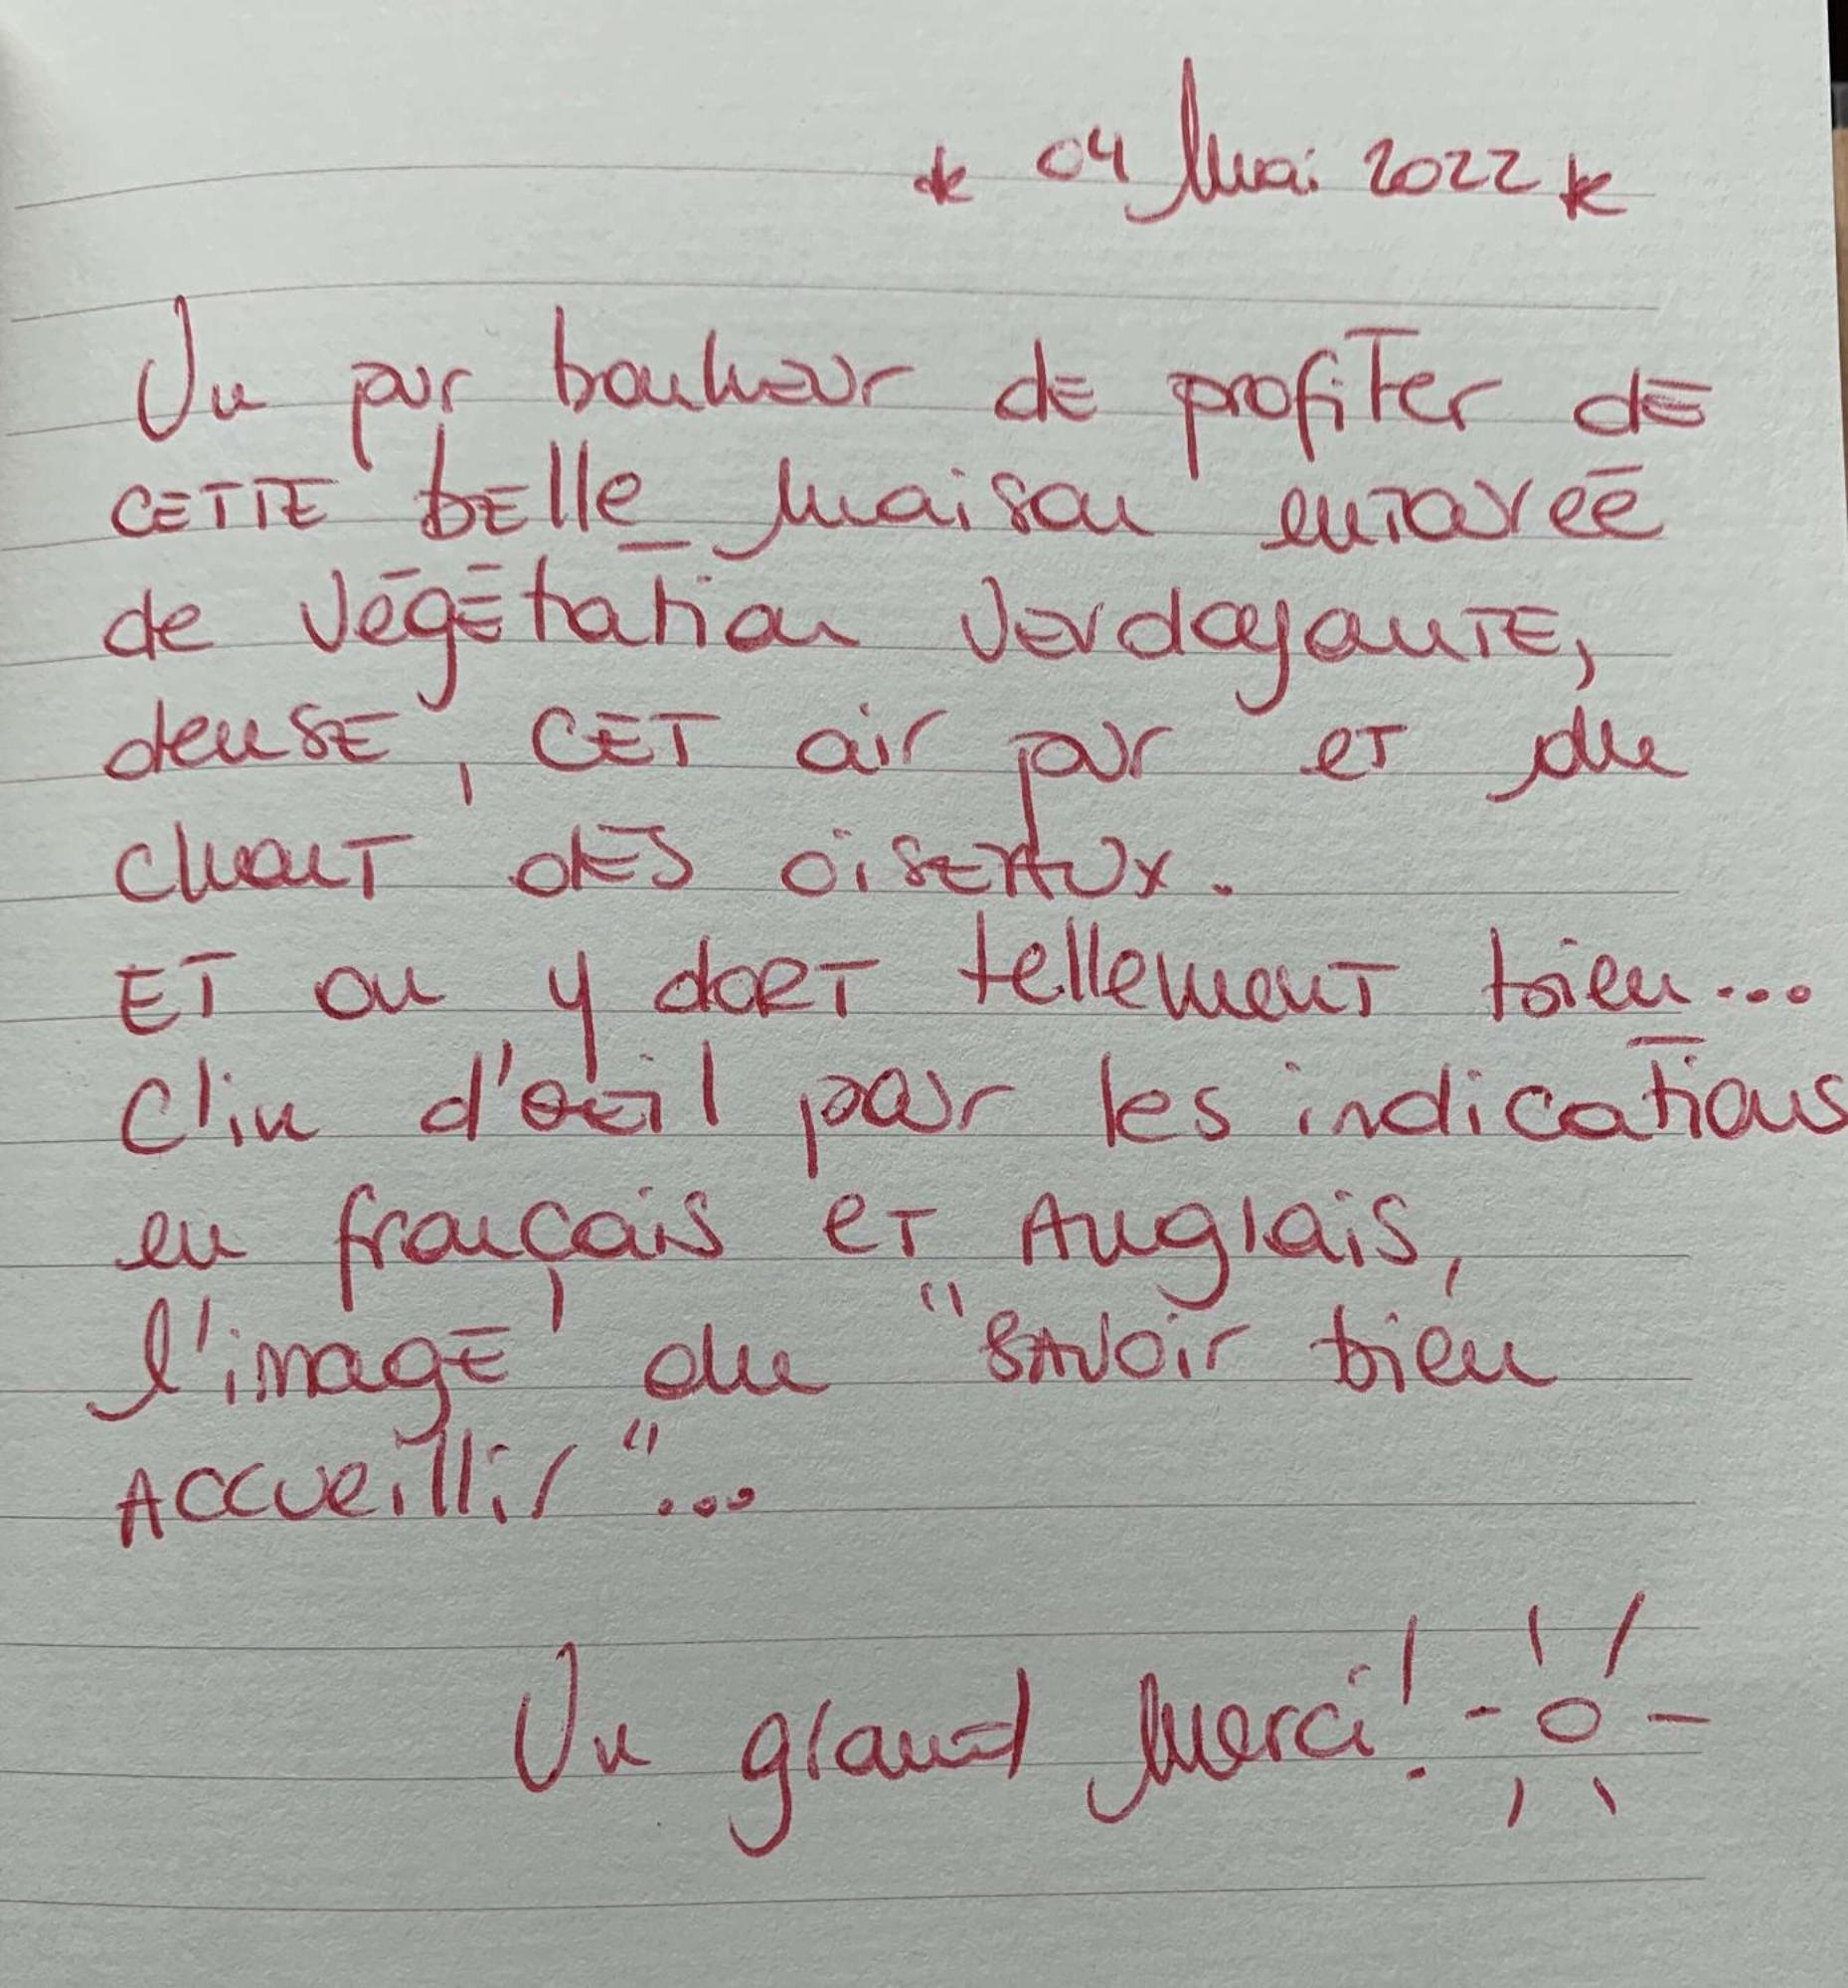 * 04 Mai 2022 *
Un pur bonheur de profiter de
CETTE bElle maison entourée
de végétation verdoyante,
dense, CET air pur et du
chant des oiseaux.
ET on y dort tellement bien...
Clin d'œil pour les indications
en français et Anglais,
l'image du "savoir bien
Accueillir"...
Un grand Merci!